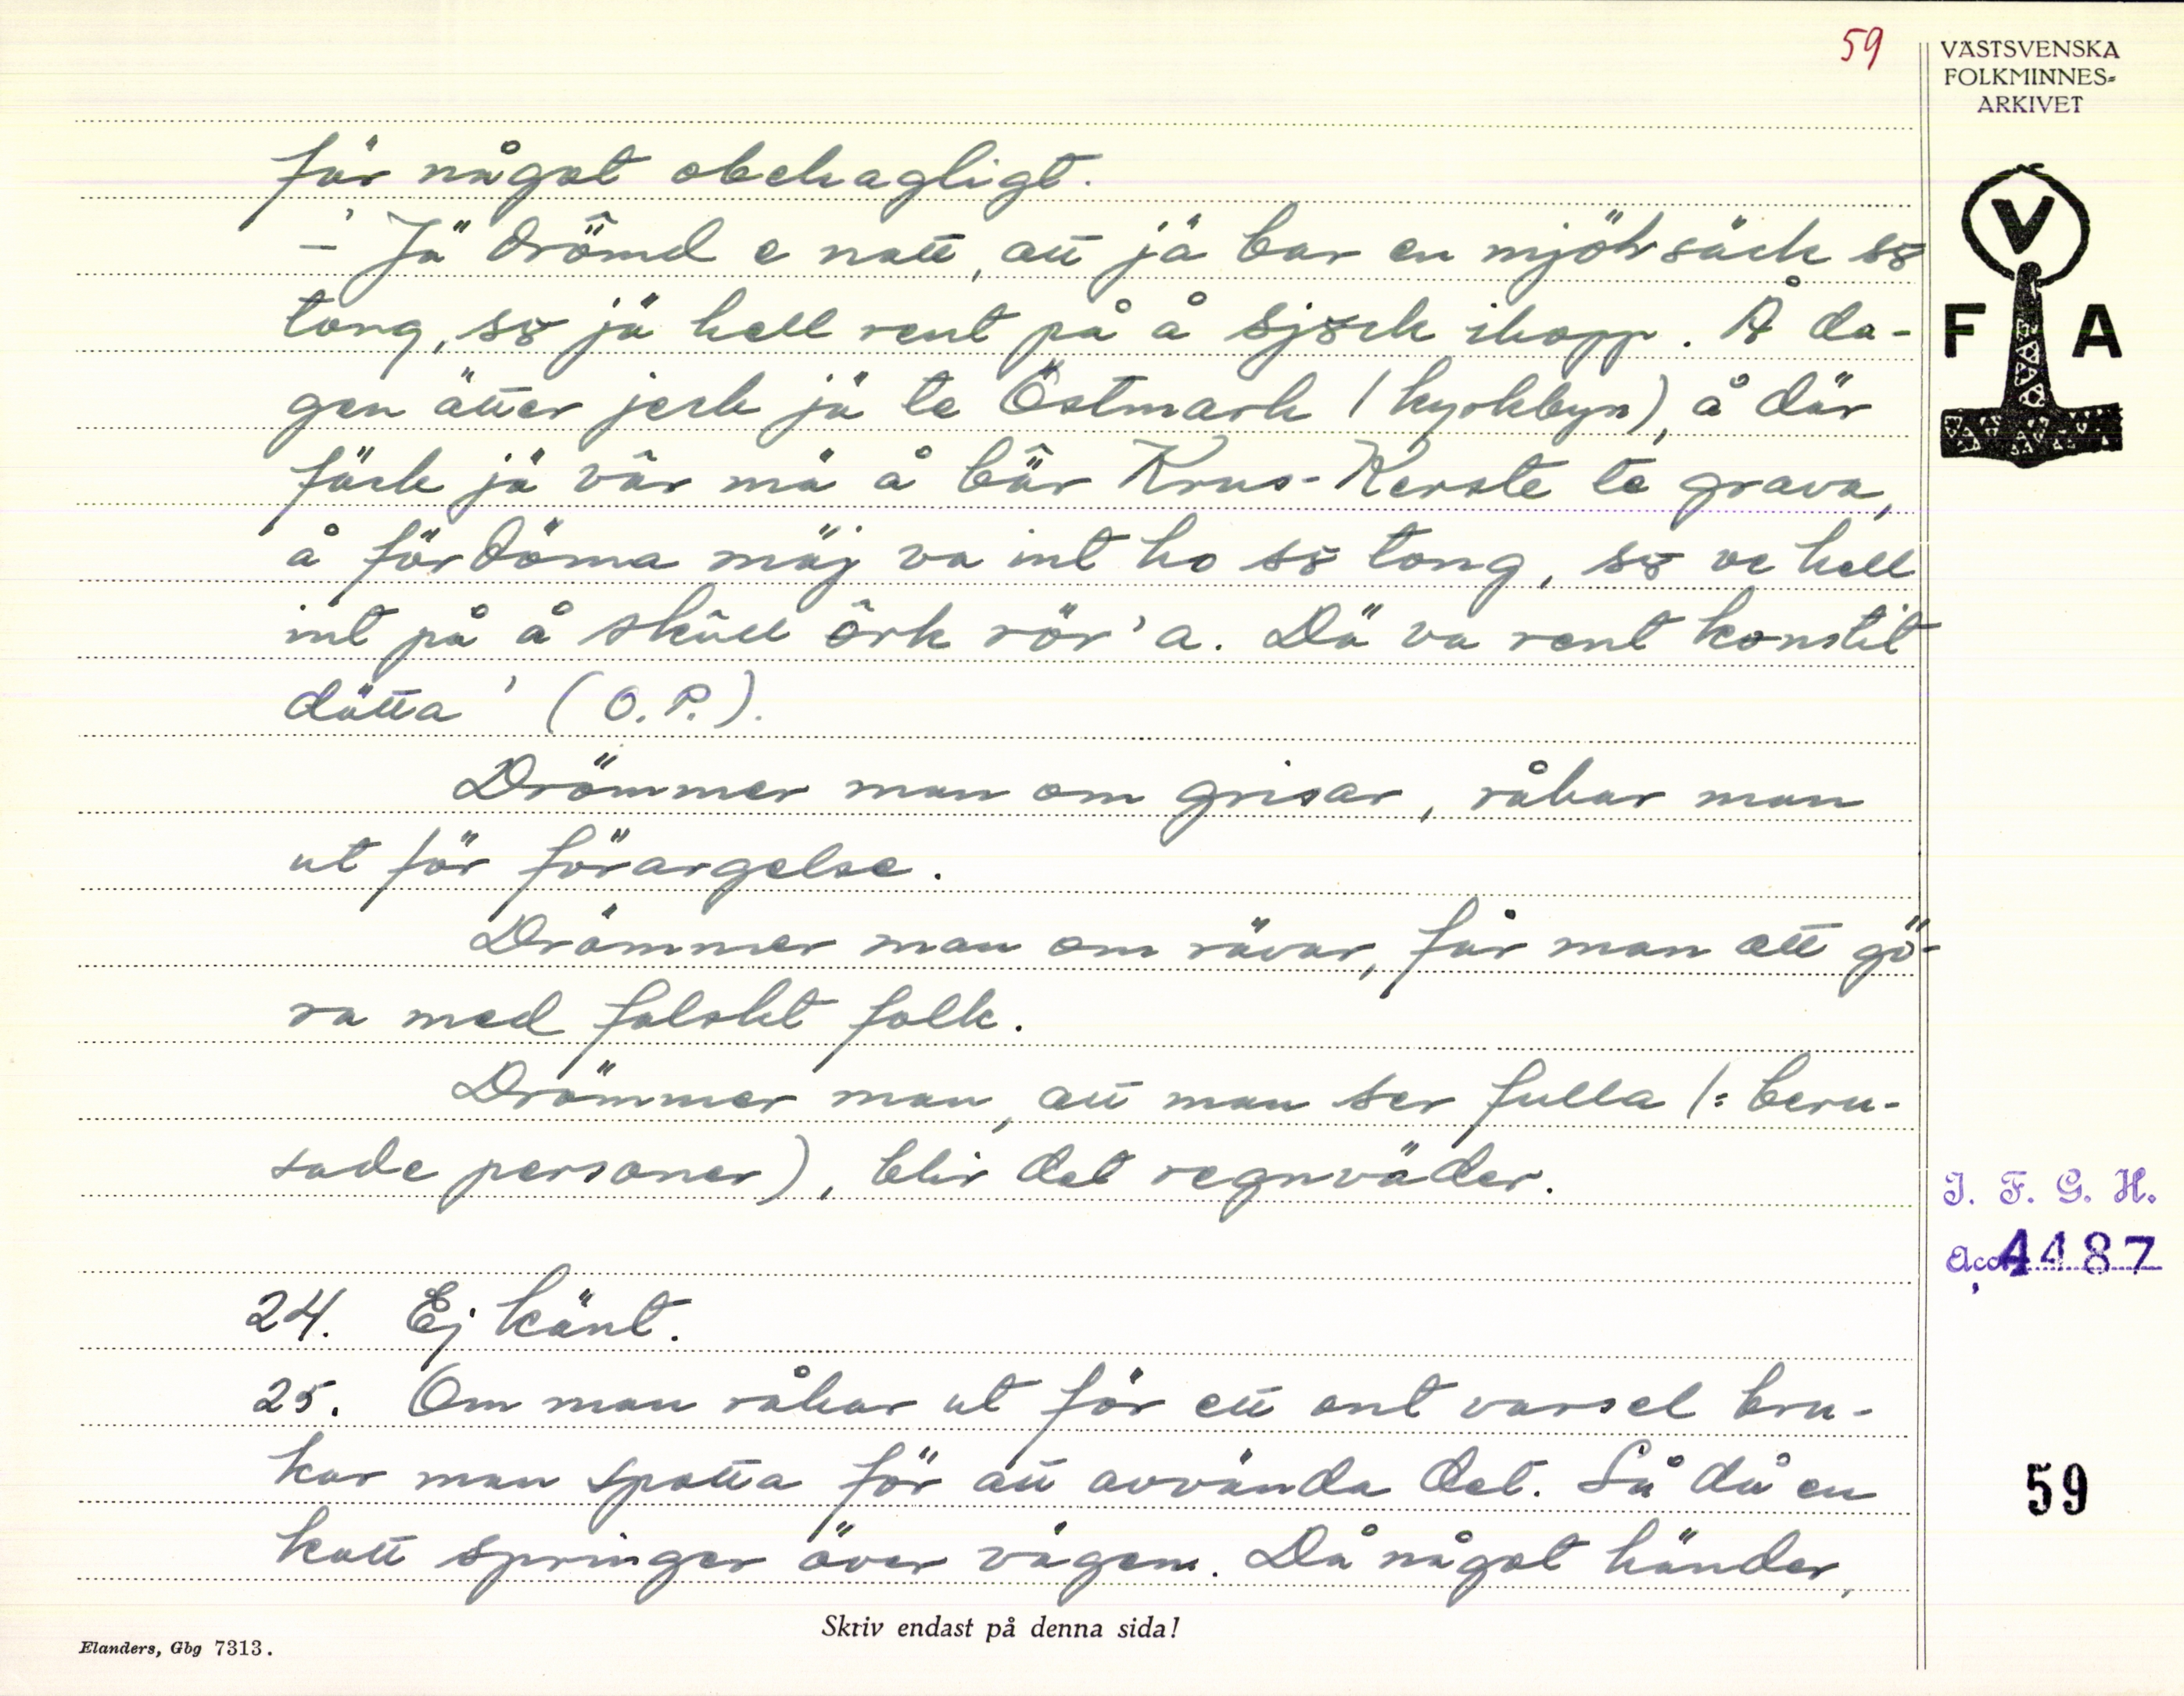 59
VÄSTSVENSKA
FOLKMINNES=
ARKIVET
V
F A
för något obehagligt.
— 'Jä drömd e natt, att jä bar en mjöhsäck sö
tong, sö jä hell rent på å sjönk ihopp. Å da-
gen ätter jeck jä te Östmark (kyrkbyn), å där
feck jä vâr mä å bär Krus-Kerste te grava,
å fördöma mäj va int ho sö tong, sö ve hell
int på å skull ôrk rör'a. Dä va rent konstit
dätta' (O.P.).
Drömmer man om grisar, råkar man
ut för förargelse.
Drömmer man om rävar, får man att gö-
ra med falskt folk.
Drömmer man, att man ser fulla (= beru-
sade personer), blir det regnväder.
24. Ej känt.
25. Om man råkar ut för ett ont varsel bru-
kar man spotta för att avvända det. Så då en
katt springer över vägen. Då något händer,
I. F. G. H.
Acc. 4487
59
Skriv endast på denna sida!
Elanders, Gbg 7313.